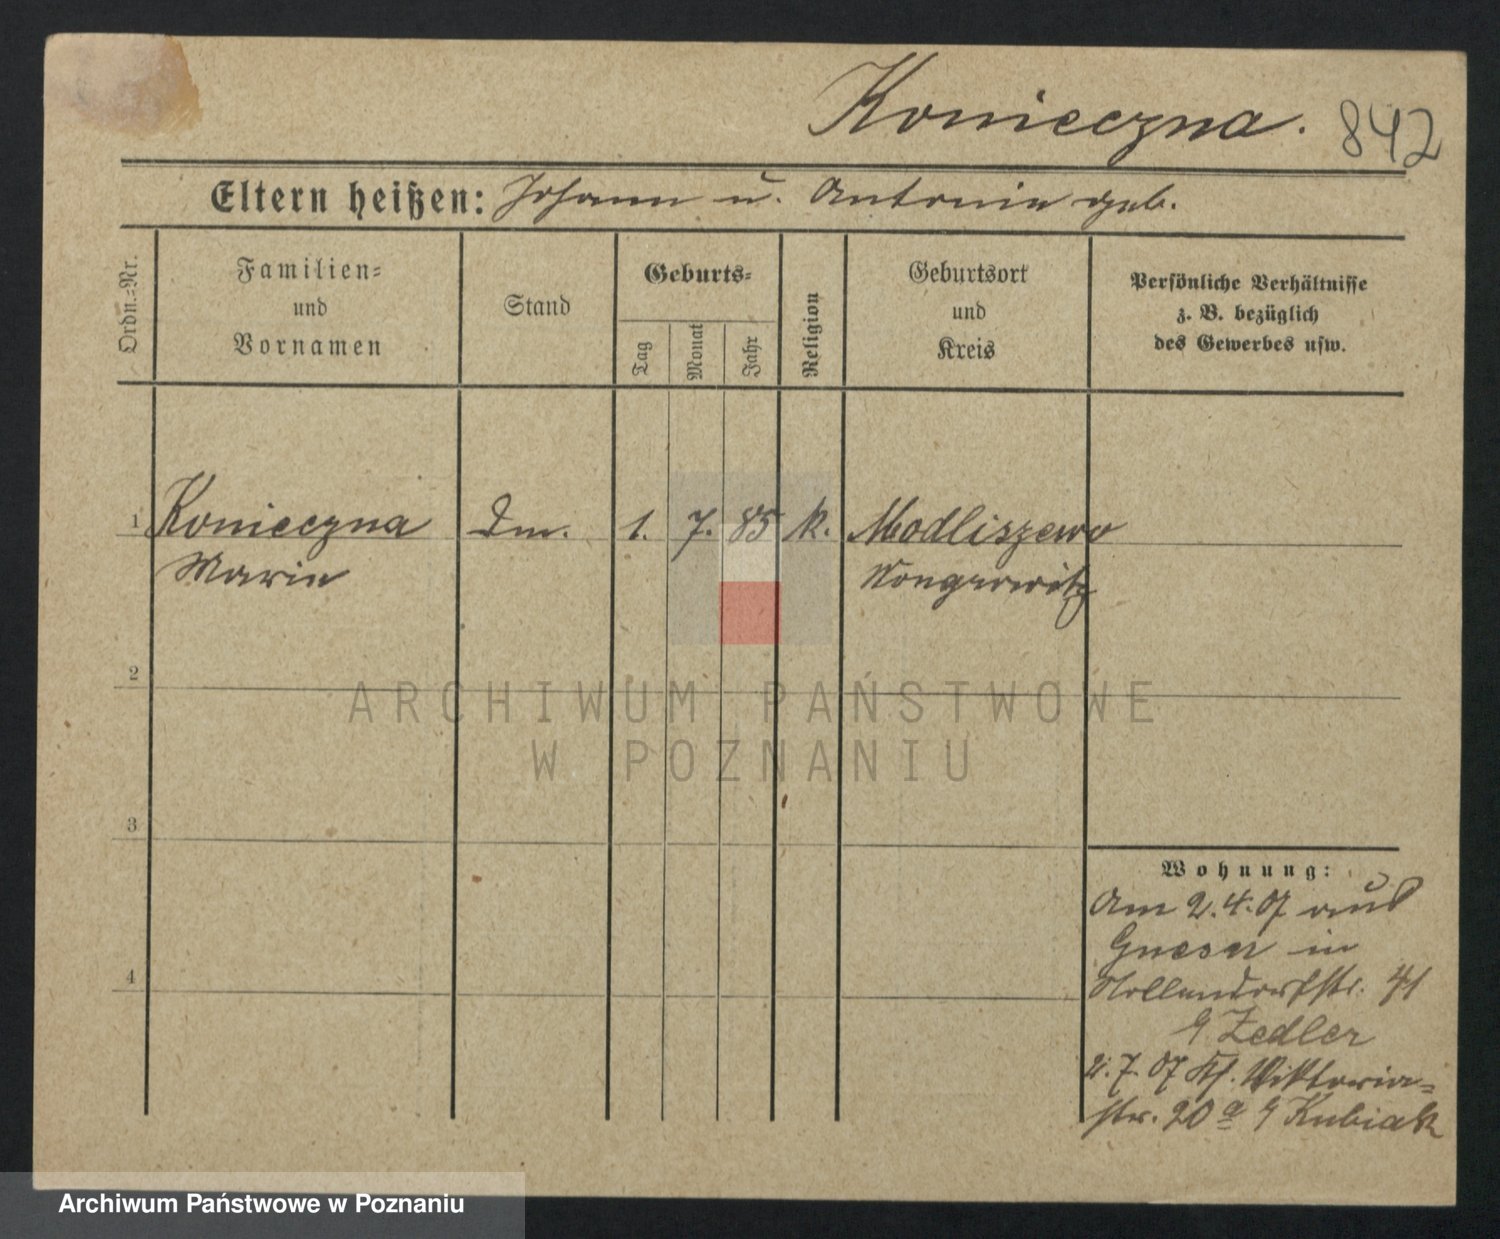 Konieczna. 842
Eltern heißen: Johann u. Antonie geb.
Ordn.-Nr.
Familien-
und
Vornamen
Stand
Geburts-
Tag
Monat
Jahr
Religion
Geburtsort
und
Kreis
Persönliche Verhältnisse
z. B. bezüglich
des Gewerbes usw.
1 Konieczna Dm. 1. 7. 85 k. Modliszewo
Marie Wongrowitz
2
ARCHIWUM PAŃSTWOWE
W POZNANIU
3
Wohnung:
Am 2.4.07 aus
Gnesen in
4
Hollendorfstr. 41
Zedler
2.7.07 Viktoria-
str. 20a Kubiak
Archiwum Państwowe w Poznaniu